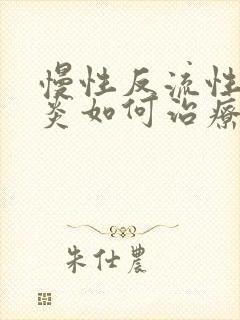 慢性反流性
炎如何治療
朱仕農